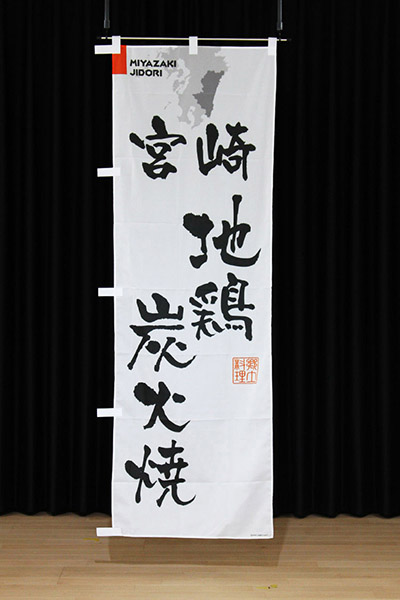 MIYAZAKI
JIDORI
宮崎
地鶏
炭火焼
郷土
料理